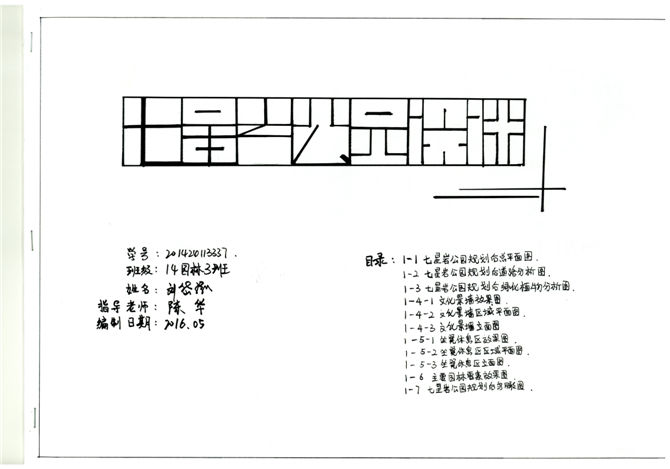 七星公园景观设计
学号：201420113337.
班级：14园林3班
姓名：
指导老师：陈华
编制日期：2016.05
目录：1-1 七星岩公园规划总平面图.
1-2 七星岩公园规划 道路分析图.
1-3 七星岩公园规划 绿化植物分析图.
1-4-1 文化景墙效果图.
1-4-2 文化景墙区域平面图.
1-4-3 文化景墙立面图
1-5-1 坐凳休息区效果图.
1-5-2 坐凳休息区区域平面图.
1-5-3 坐凳休息区立面图.
1-6 主要园林 效果图.
1-7 七星岩公园规划 鸟瞰图.